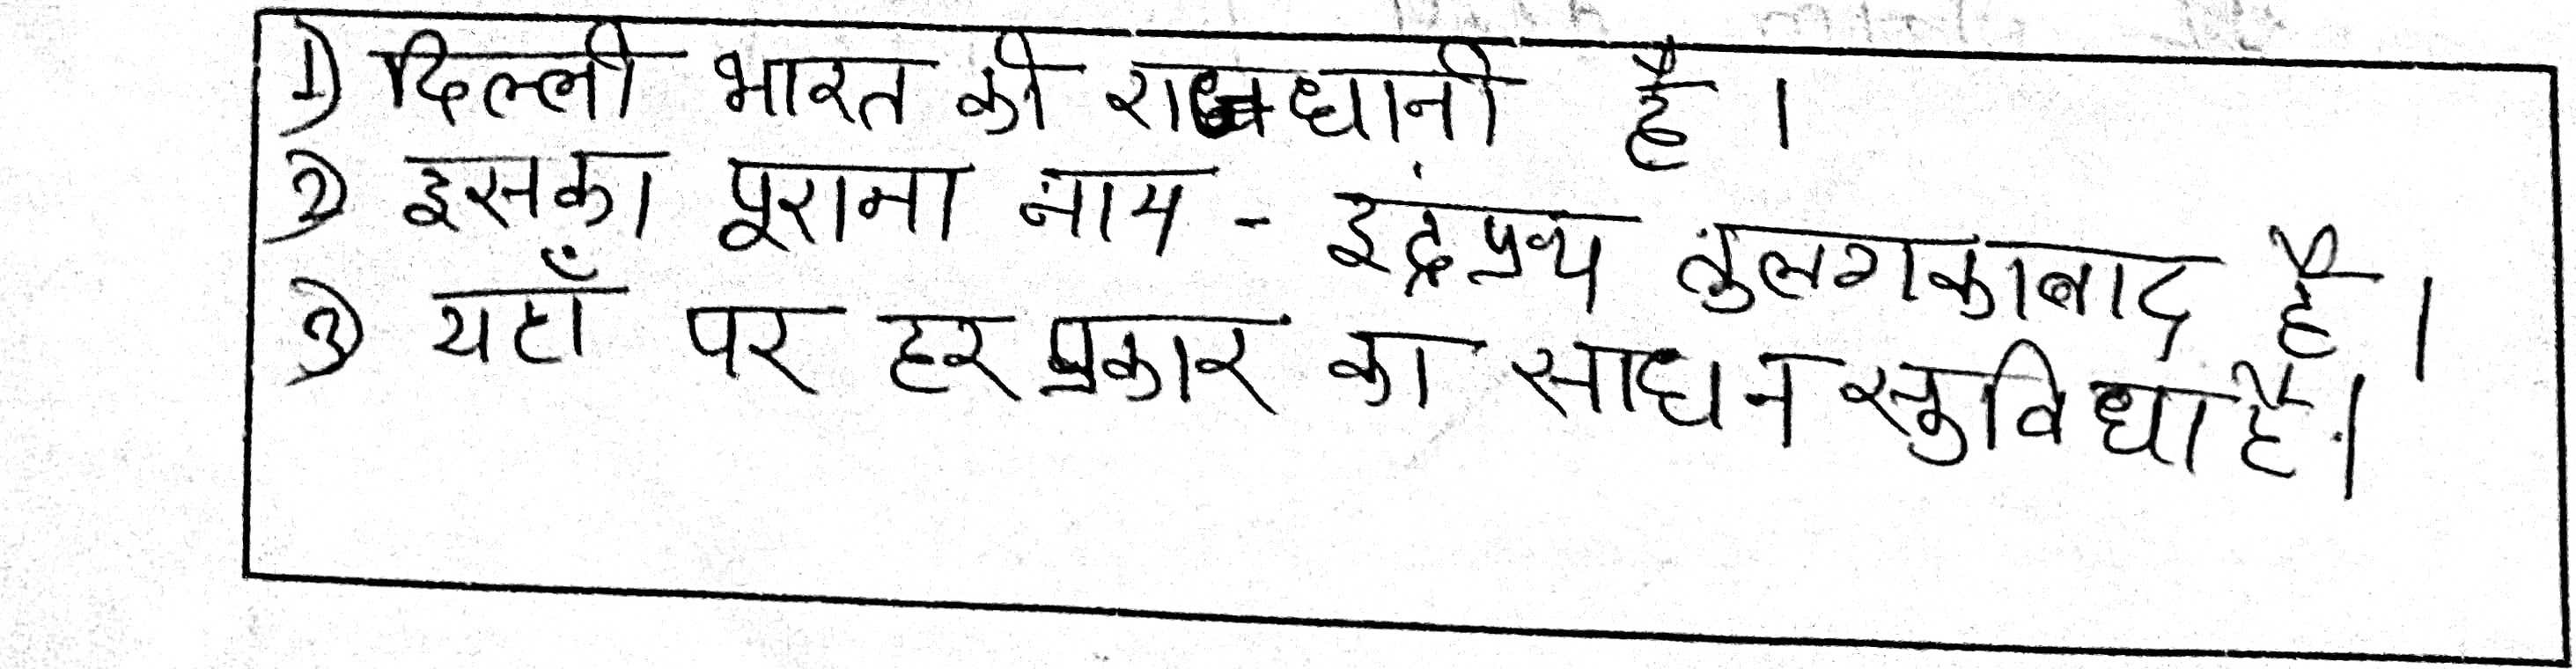 1) दिल्ली भारत की राजधानी है।
2) इसका पूराना नाम - इंद्रंप्रथ तुलगकाबाद है।
3) यहाँ पर हर प्रकार का साधन सुविधा है।